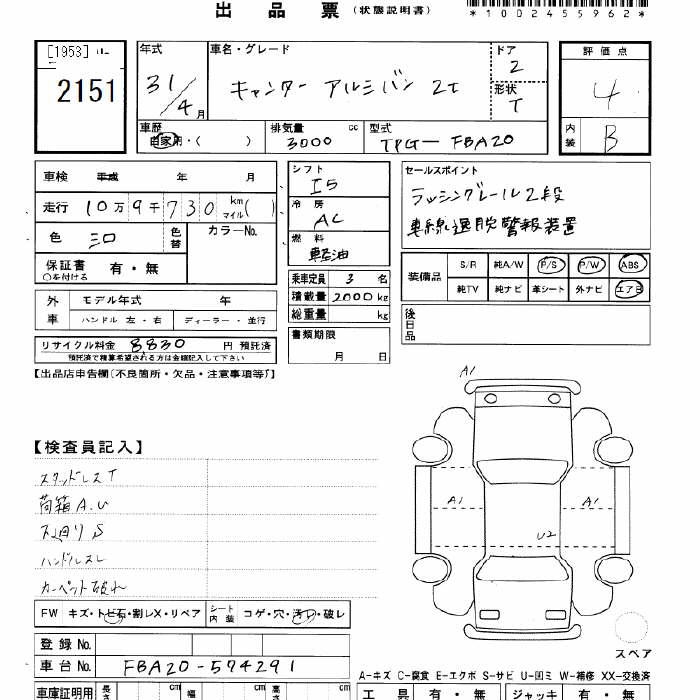 出品票 (状態説明書)
*1002455962*
[1953]
2151
年式 車名・グレード ドア 評価点
31/4月 キャンター アルミバン 2t 2 4
形状
T
車歴 排気量 cc 型式 内装
自家用・( ) 3000 TPG-FBA20 B
車検 平成 年 月
走行 10万9千730 km マイル( )
色 シロ 色替 カラーNo.
保証書 有・無
○を付ける
外車 モデル年式 年
ハンドル 左・右 ディーラー・並行
リサイクル料金 8830 円 預託済
預託済で精算希望される方は金額記入して下さい
シフト
I5
冷房
AC
燃料
軽油
乗車定員 3 名
積載量 2000 kg
総重量 kg
書類期限
月 日
セールスポイント
ラッシングレール2段
車線逸脱警報装置
装備品 S/R 純A/W P/S P/W ABS
純TV 純ナビ 革シート 外ナビ エアB
後日品
【出品店申告欄(不良箇所・欠品・注意事項等)】
【検査員記入】
スタッドレスT
荷箱A.U
下廻りS
ハンドルスレ
カーペット破れ
A1
A1 A1
U2
スペア
FW キズ・トビ石・割レX・リペア シート内装 コゲ・穴・汚レ・破レ
登録No.
車台No. FBA20-574291
A-キズ C-腐食 E-エクボ S-サビ U-凹ミ W-補修 XX-交換済
車庫証明用 長さ cm 幅 cm 高さ cm
工具 有・無 ジャッキ 有・無